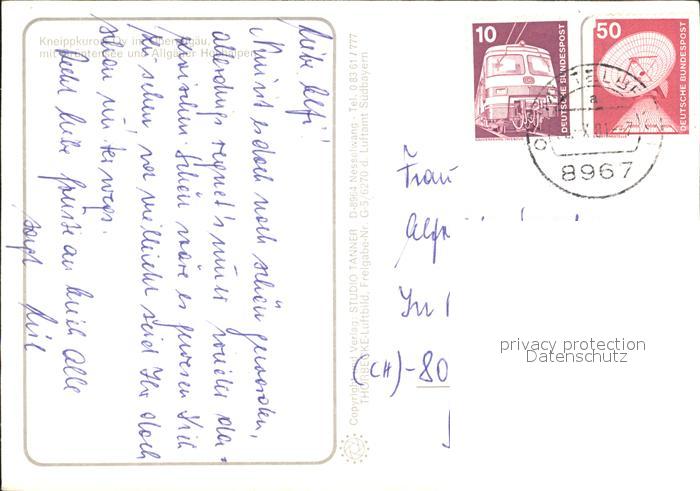 Kneippkurort Oy im Oberallgäu,
mit Grüntensee und Allgäuer Hochalpen
Liebe Alfi!
Nun ist es doch noch schön geworden,
allerdings regnet's mal wieder da-
zwischen. Schön wäre es gewesen Dich
zu sehen, na vielleicht seid Ihr doch
schon unterwegs.
Recht liebe Grüsse an Euch Alle
sagt
Copyright und Verlag: STUDIO TANNER D-8964 Nesselwang · Tel. 08361/777
THORBECKE-Luftbild, Freigabe-Nr. G-5/6270 Luftamt Südbayern
10
DEUTSCHE BUNDESPOST
50
DEUTSCHE BUNDESPOST
a
8967
Frau
In
(CH)-80
privacy protection
Datenschutz